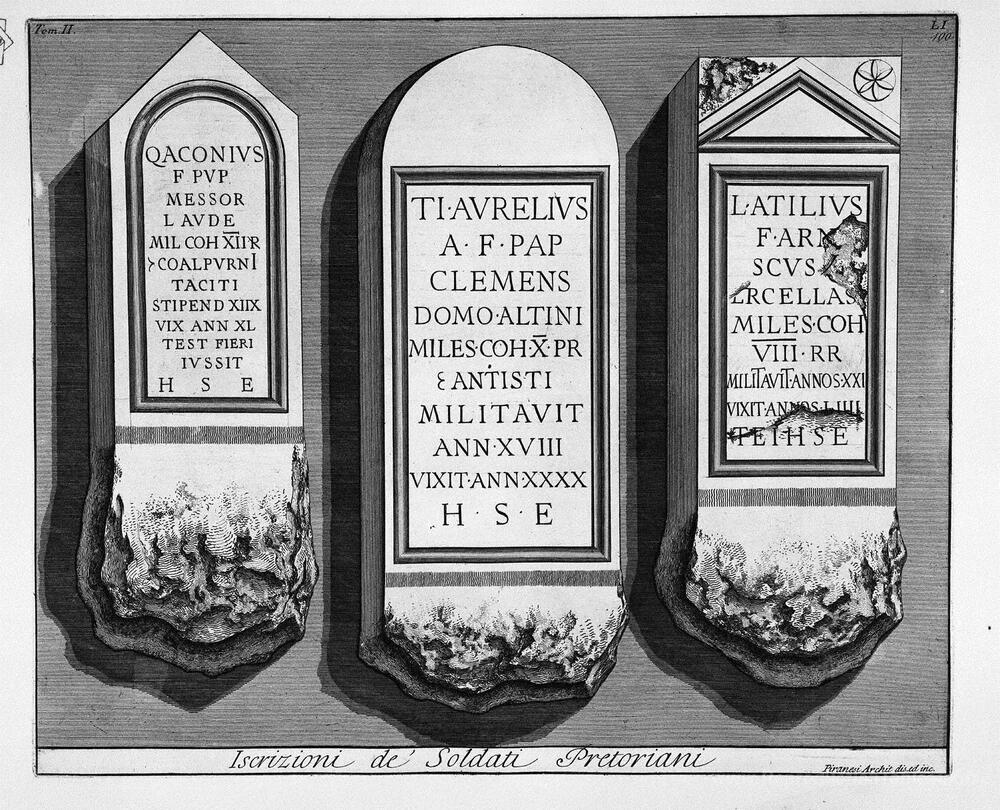 Tom. II.
LI
190
QACONIVS
F PVP
MESSOR
LAVDE
MIL COH X̅I̅I̅ R
COALPVRNI
TACITI
STIPEND XIIX
VIX ANN XL
TEST FIERI
IVSSIT
H S E
TI·AVRELIVS
A·F·PAP
CLEMENS
DOMO·ALTINI
MILES·COH·X̅·PR
ANTISTI
MILITAVIT
ANN·XVIII
VIXIT·ANN·XXXX
H·S·E
L·ATILIVS
F·ARN
SCVS
ERCELLAS
MILES·COH
V̅I̅I̅I̅·RR
MILITAVIT·ANNOS·XXI
VIXIT·ANNOS·LIIII
TEIHSE
Iscrizioni de' Soldati Pretoriani
Piranesi Archit dis.ed inc.